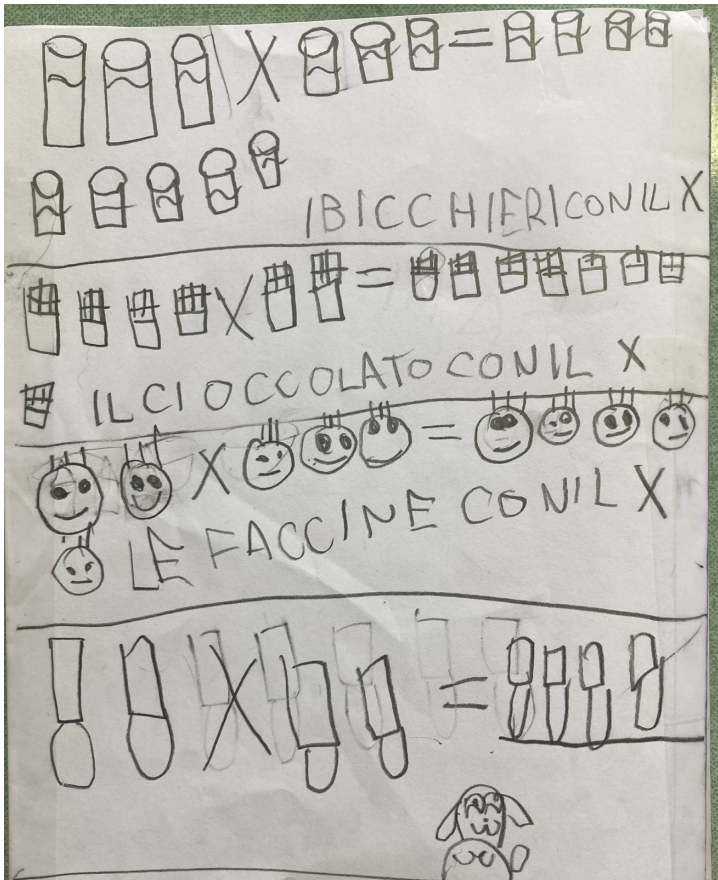 X =
IBICCHIERICONIL X
X =
IL CIOCCOLATO CONIL X
X =
LE FACCINE CONIL X
X =